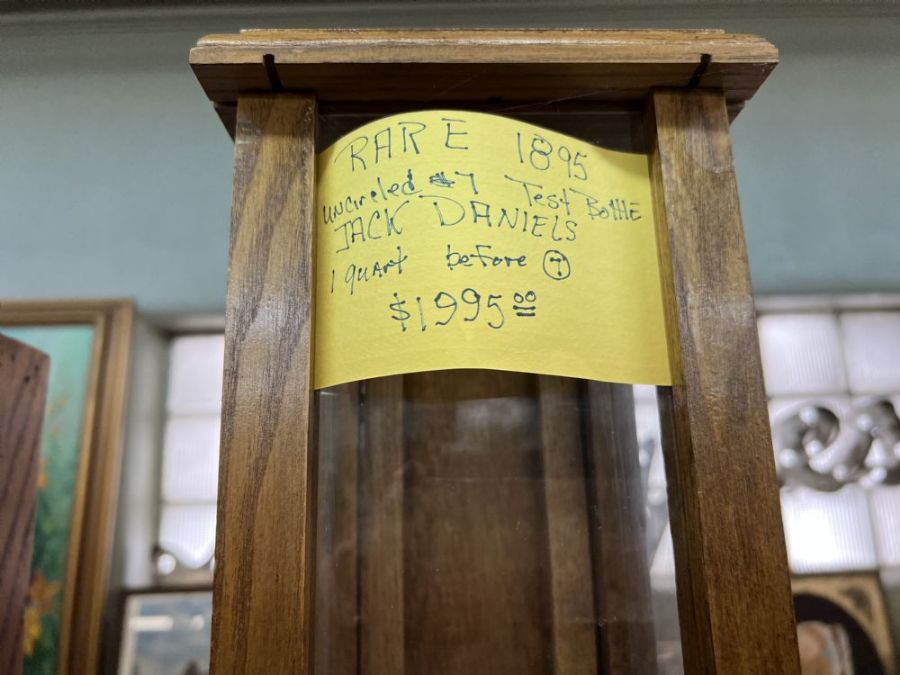 RARE 1895
uncircled #7 Test Bottle
JACK DANIELS
1 quart before 7
$1995.00